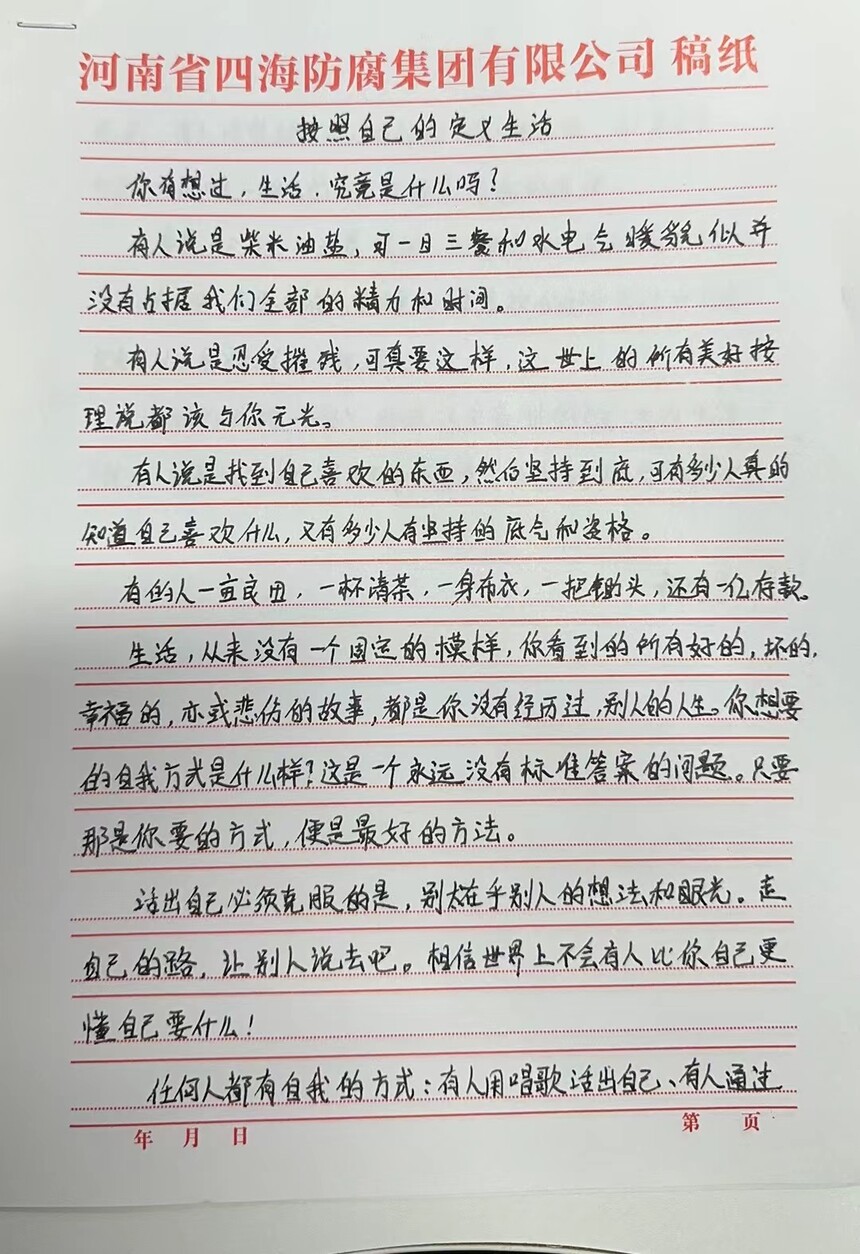 河南省四海防腐集团有限公司 稿纸
按照自己的定义生活
你有想过，生活．究竟是什么吗？
有人说是柴米油盐，可一日三餐和水电气暖貌似并
没有占据我们全部的精力和时间。
有人说是忍受摧残，可真要这样，这世上的所有美好按
理说都该与你无光。
有人说是找到自己喜欢的东西，然后坚持到底，可有多少人真的
知道自己喜欢什么，又有多少人有坚持的底气和资格。
有的人一亩良田，一杯清茶，一身布衣，一把锄头，还有一亿存款。
生活，从来没有一个固定的模样，你看到的所有好的，坏的，
幸福的，亦或悲伤的故事，都是你没有经历过，别人的人生。你想要
的自我方式是什么样？这是一个永远没有标准答案的问题。只要
那是你要的方式，便是最好的方法。
活出自己必须克服的是，别太在乎别人的想法和眼光。走
自己的路，让别人说去吧。相信世界上不会有人比你自己更
懂自己要什么！
任何人都有自我的方式：有人用唱歌活出自己、有人通过
年 月 日
第 页